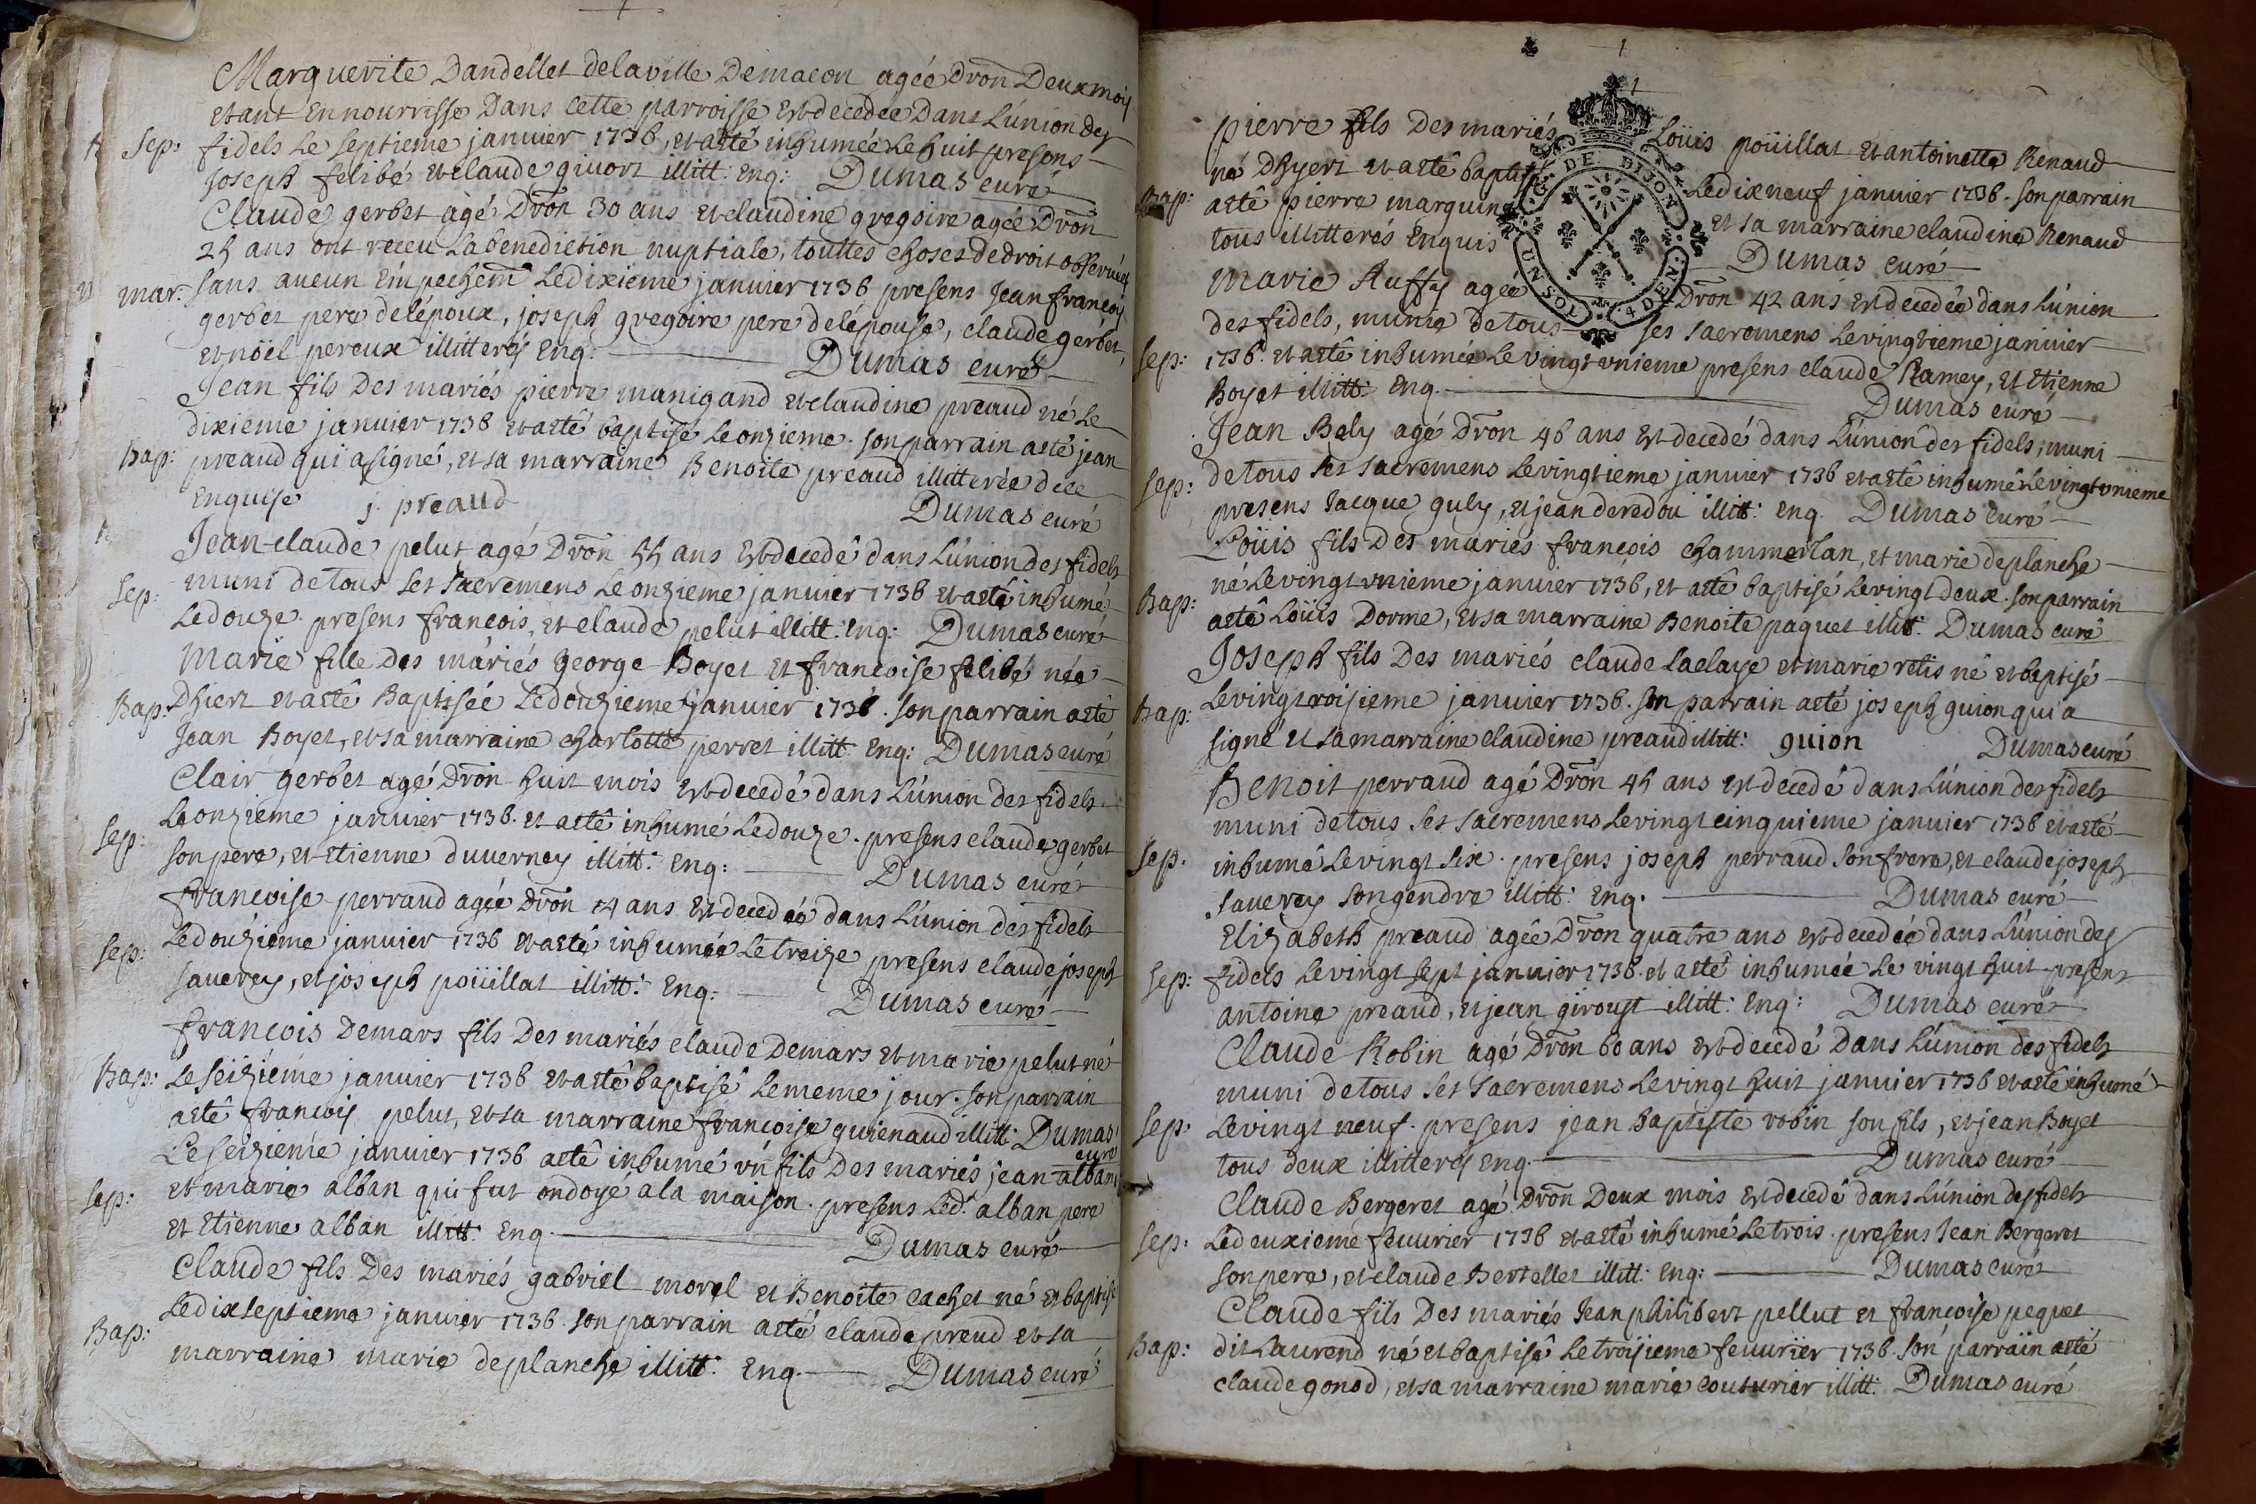 Marguerite Dandellet de la ville de macon agée dron Deux moys
etant en nourrisse Dans cette parroisse est decedée Dans L'union des
Sep: fidels Le septieme janvier 1736, et a eté inhumée Le huit presens
Joseph felibé et claude givort illitt: Enq: Dumas curé
Claude gerbet agé Dron 30 ans et claudine gregoire agée Dron
25 ans ont receu La benediction nuptiale, touttes choses de droit observées
mar: sans aucun Empechem Le dixieme janvier 1736 presens Jean françois
gerbet pere de l'époux, joseph gregoire pere de l'épouse, claude gerbet,
et noël pereux illitterés Enq: Dumas curé
Jean fils Des mariés pierre manigand et claudine preaud né Le
dixieme janvier 1736 et a eté baptisé Le onzieme. son parrain a eté jean
Bap: preaud qui a signé, et sa marraine Benoite preaud illitterée de ce
Enquise j. preaud Dumas curé
Jean-claude pelut agé Dron 55 ans Est decedé dans L'union des fidels
Sep: muni de tous ses sacremens Le onzieme janvier 1736 et a eté inhumé
Le douze presens françois, et claude pelut illitt: Enq: Dumas curé
Marie fille Des mariés George Boyet et françoise felibé née
Bap: Dhiert et a eté Baptisée Le douzieme janvier 1736. son parrain a eté
Jean Boyet, et sa marraine charlotte perret illitt: Enq: Dumas curé
Clair gerbet agé Dron huit mois Est decedé dans L'union des fidels
Sep: Le onzieme janvier 1736. et a eté inhumé Le douze. presens claude gerbet
son pere, et Etienne duverney illitt: Enq: Dumas curé
françoise perraud agée Dron 14 ans Est decedée dans L'union des fidels
Sep: Le douzieme janvier 1736 et a eté inhumée Le treize presens claude joseph
saverey, et joseph poüillat illitt: Enq: Dumas curé
François Demars fils Des mariés claude Demars et marie pelut né
Bap: Le seizieme janvier 1736 et a eté baptisé Le meme jour. son parrain
a eté françois pelut, et sa marraine françoise guienaud illitt: Dumas
curé
Le seizieme janvier 1736 a eté inhumé un fils Des mariés jean alban
Sep: et marie alban qui fut ondoyé a la maison. presens Led. alban pere
et Etienne alban illitt: Enq Dumas curé
Claude fils Des mariés gabriel morel et Benoite cachet né et baptisé
Bap: Le dixseptieme janvier 1736. son parrain a eté claude preud et sa
marraine marie deplanche illitt: Enq Dumas curé
1
1
G. DE DIJON
UN SOL
4 DEN.
pierre fils Des mariés Loüis poüillat et antoinette Renaud
né Dhyert et a eté baptisé Le dixneuf janvier 1736. son parrain
Bap: a eté pierre marguin et sa marraine claudine Renaud
tous illitterés Enquis Dumas curé
Marie Auffay agée Dron 42 ans Est decedée dans L'union
des fidels, munie de tous ses sacremens Le vingtieme janvier
Sep: 1736. et a eté inhumée Le vingt vnieme presens claude Ramey, et Etienne
Boyet illitt: Enq. Dumas curé
Jean Bely agé Dron 46 ans Est decedé dans L'union des fidels, muni
Sep: de tous ses sacremens Le vingtieme janvier 1736 et a eté inhumé Le vingt vnieme
presens Jacque guly, et jean deredou illitt: Enq. Dumas curé
Loüis fils Des mariés françois chammerlan, et marie deplanche
Bap: né Le vingt vnieme janvier 1736, et a eté baptisé Le vingt deux. son parrain
a eté Loüis Dorme, et sa marraine Benoite paquet illitt: Dumas curé
Joseph fils Des mariés claude Laclaye et marie retis né et baptisé
Bap: Le vingt troisieme janvier 1736. son parrain a eté joseph guion qui a
signé et sa marraine claudine preaud illitt: guion Dumas curé
Benoit perraud agé Dron 45 ans Est decedé dans L'union des fidels
muni de tous ses sacremens Le vingt cinquieme janvier 1736 et a eté
Sep. inhumé Le vingt six. presens joseph perraud son frere, et claude joseph
saverey son gendre illitt: Enq. Dumas curé
Elizabeth preaud agée Dron quatre ans Est decedée dans L'union des
Sep: fidels Le vingt sept janvier 1736. et a eté inhumée Le vingt huit presens
antoine preaud, et jean giroust illitt: Enq: Dumas curé
Claude Robin agé Dron 60 ans Est decedé Dans L'union des fidels
muni de tous ses sacremens Le vingt huit janvier 1736 et a eté inhumé
Sep: Le vingt neuf. presens jean Baptiste robin son fils, et jean Boyet
tous deux illitterés Enq. Dumas curé
Claude Bergeret agé Dron Deux mois Est decedé dans L'union des fidels
Sep: Le deuxieme fevurier 1736 et a eté inhumé Le trois. presens Jean Bergeret
son pere, et claude Bertellet illitt: Enq: Dumas curé
Claude fils Des mariés Jean philibert pellut et françoise pequet
Bap: dit Laurend né et baptisé Le troisieme fevurier 1736. Son parrain a eté
claude gonod, et sa marraine marie couturier illitt: Dumas curé